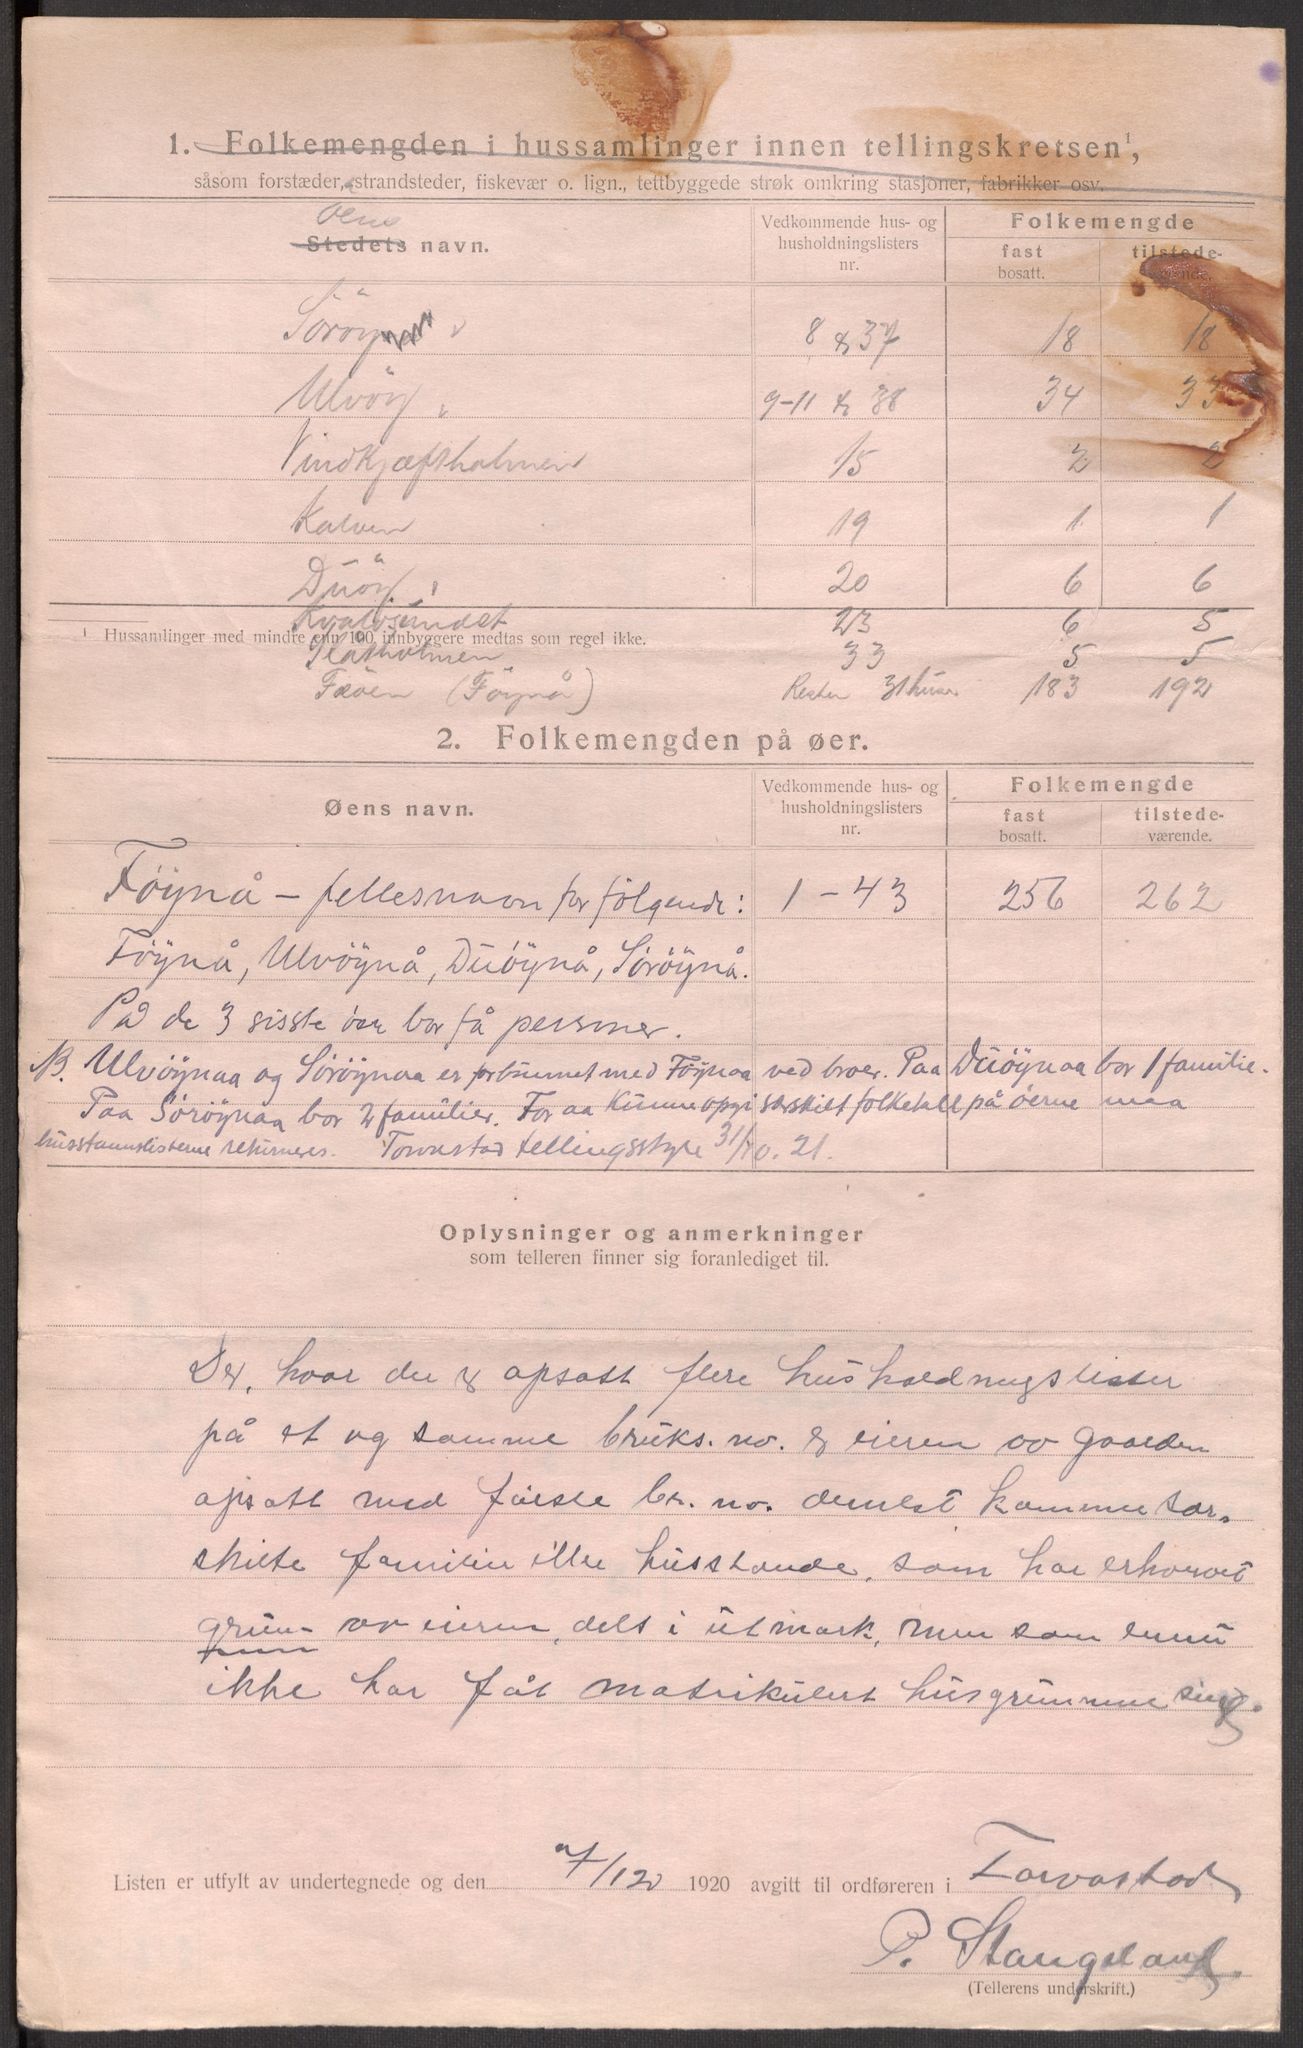 1. Folkemengden i hussamlinger innen tellingskretsen¹,
såsom forstæder, strandsteder, fiskevær o. lign., tettbyggede strøk omkring stasjoner, fabrikker osv.
Øens
Stedets navn.
Vedkommende hus- og husholdningslisters nr.
Folkemengde
fast bosatt.
tilstedeværende.
Söröy 8 & 37 18 18
Ulvöy 9-11 & 38 34 33
Vindkjæftholmen 15 2 2
Kalven 19 1 1
Dúöy 20 6 6
Kvalvsundet 23 6 5
¹ Hussamlinger med mindre enn 100 innbyggere medtas som regel ikke.
33 5 5
Feöen (Föynå) Resten 31 huse 183 192
2. Folkemengden på øer.
Øens navn.
Vedkommende hus- og husholdningslisters nr.
Folkemengde
fast bosatt.
tilstedeværende.
Föynå – fellesnavn for følgende: 1 – 43 256 262
Föynå, Ulvöynå, Dúöynå, Söröynå.
På de 3 sisste öer bor få personer.
NB. Ulvöynaa og Söröynaa er forbunnet med Föynaa ved broer. Paa Dúöynaa bor 1 familie.
Paa Söröynaa bor 2 familier. For aa kunne opgi særskilt folketall på öerne maa
husstannslisterne returneres. Torvastad tellingsstyre 31/10. 21.
Oplysninger og anmerkninger
som telleren finner sig foranlediget til.
Der, hvor der er opsatt flere husholdningslister
på et og samme bruks. no. er eieren av gaarden
opsatt med første br. no. dernæst kommer sær-
skilte familier eller husstande, som har erhvervet
grun- av eieren, dels i utmark, men som ennu
ikke har fåt matrikulert husgrunnene sine.
Listen er utfylt av undertegnede og den 7/12 1920 avgitt til ordføreren i Torvastad
P. Stangeland
(Tellerens underskrift.)